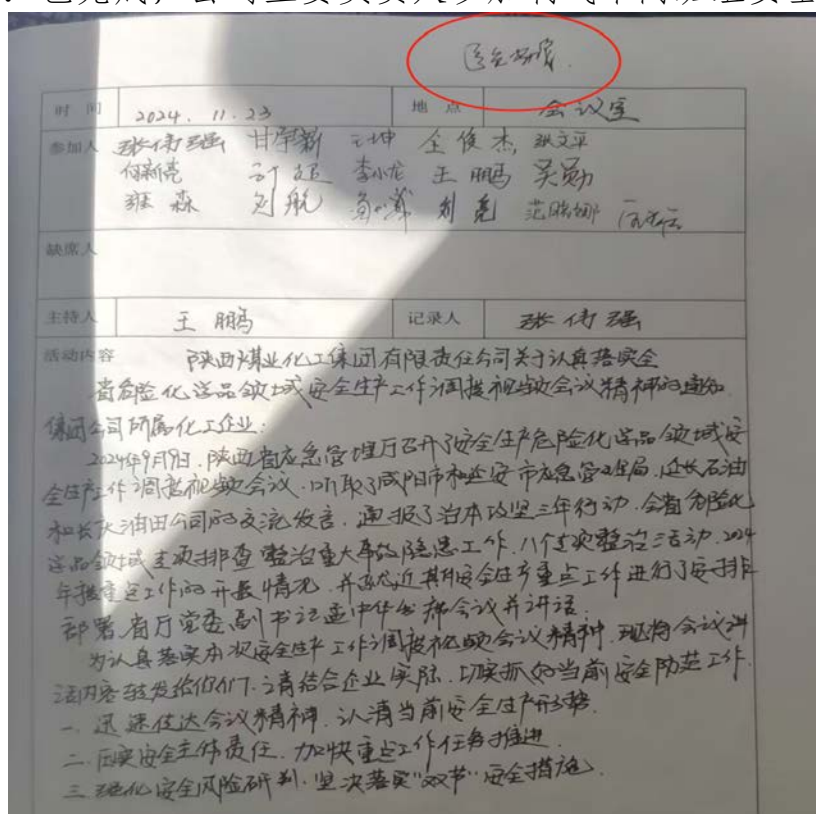 时 间 2024. 11. 23 地 点 会议室
参加人 张伟强 甘宇新 王坤 全俊杰, 张文平
何新亮 计超 李小龙 王鹏 吴勋
雍森 刘航 刘亮 范晓娜
缺席人
主持人 王鹏 记录人 张伟强
活动内容 陕西煤业化工集团有限责任公司关于认真落实全
省危险化学品领域安全生产工作调度视频会议精神的通知
集团公司所属化工企业:
2024年9月9日, 陕西省应急管理厅召开了安全生产危险化学品领域安
全生产工作调度视频会议. 听取了咸阳市和延安市应急管理局, 延长石油
和长庆油田公司的交流发言. 通报了治本攻坚三年行动. 全省危险化
学品领域专项排查整治重大事故隐患工作. 八个专项整治活动. 2024
年重点工作的开展情况. 并就近期安全生产重点工作进行了安排
部署. 省厅党委副书记孟中华出席会议并讲话.
为认真落实本次安全生产工作调度视频会议精神. 现将会议讲
话内容转发给你们. 请结合企业实际. 切实抓好当前安全防范工作.
一. 迅速传达会议精神. 认清当前安全生产形势.
二. 压实安全主体责任. 加快重点工作任务推进
三. 强化安全风险研判. 坚决落实"双节"安全措施.